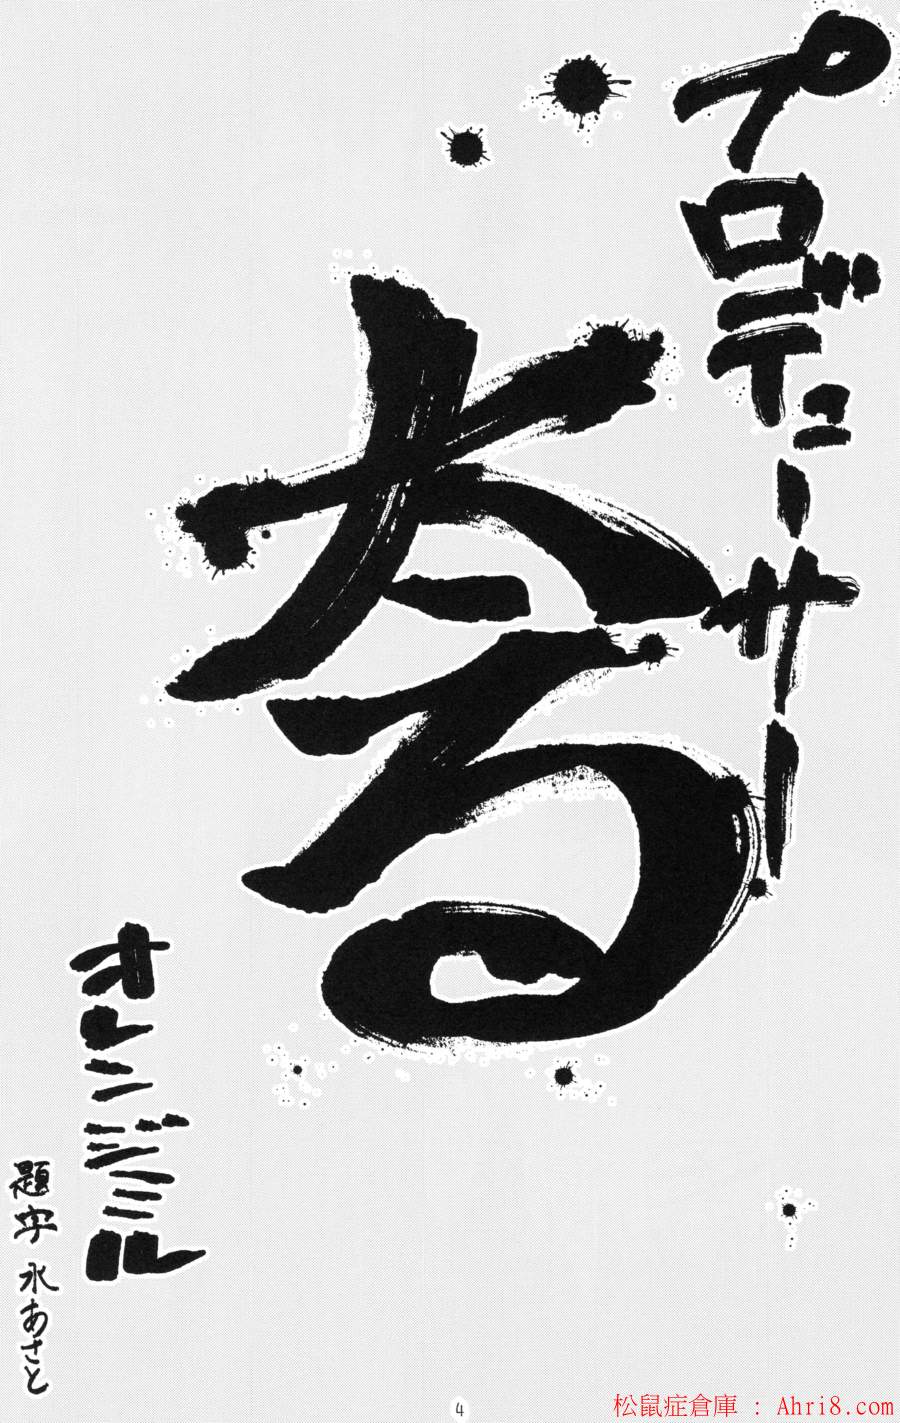 プロデューサー
太る
オレンジミル
題字 水あさと
4
松鼠症倉庫 : Ahri8.com